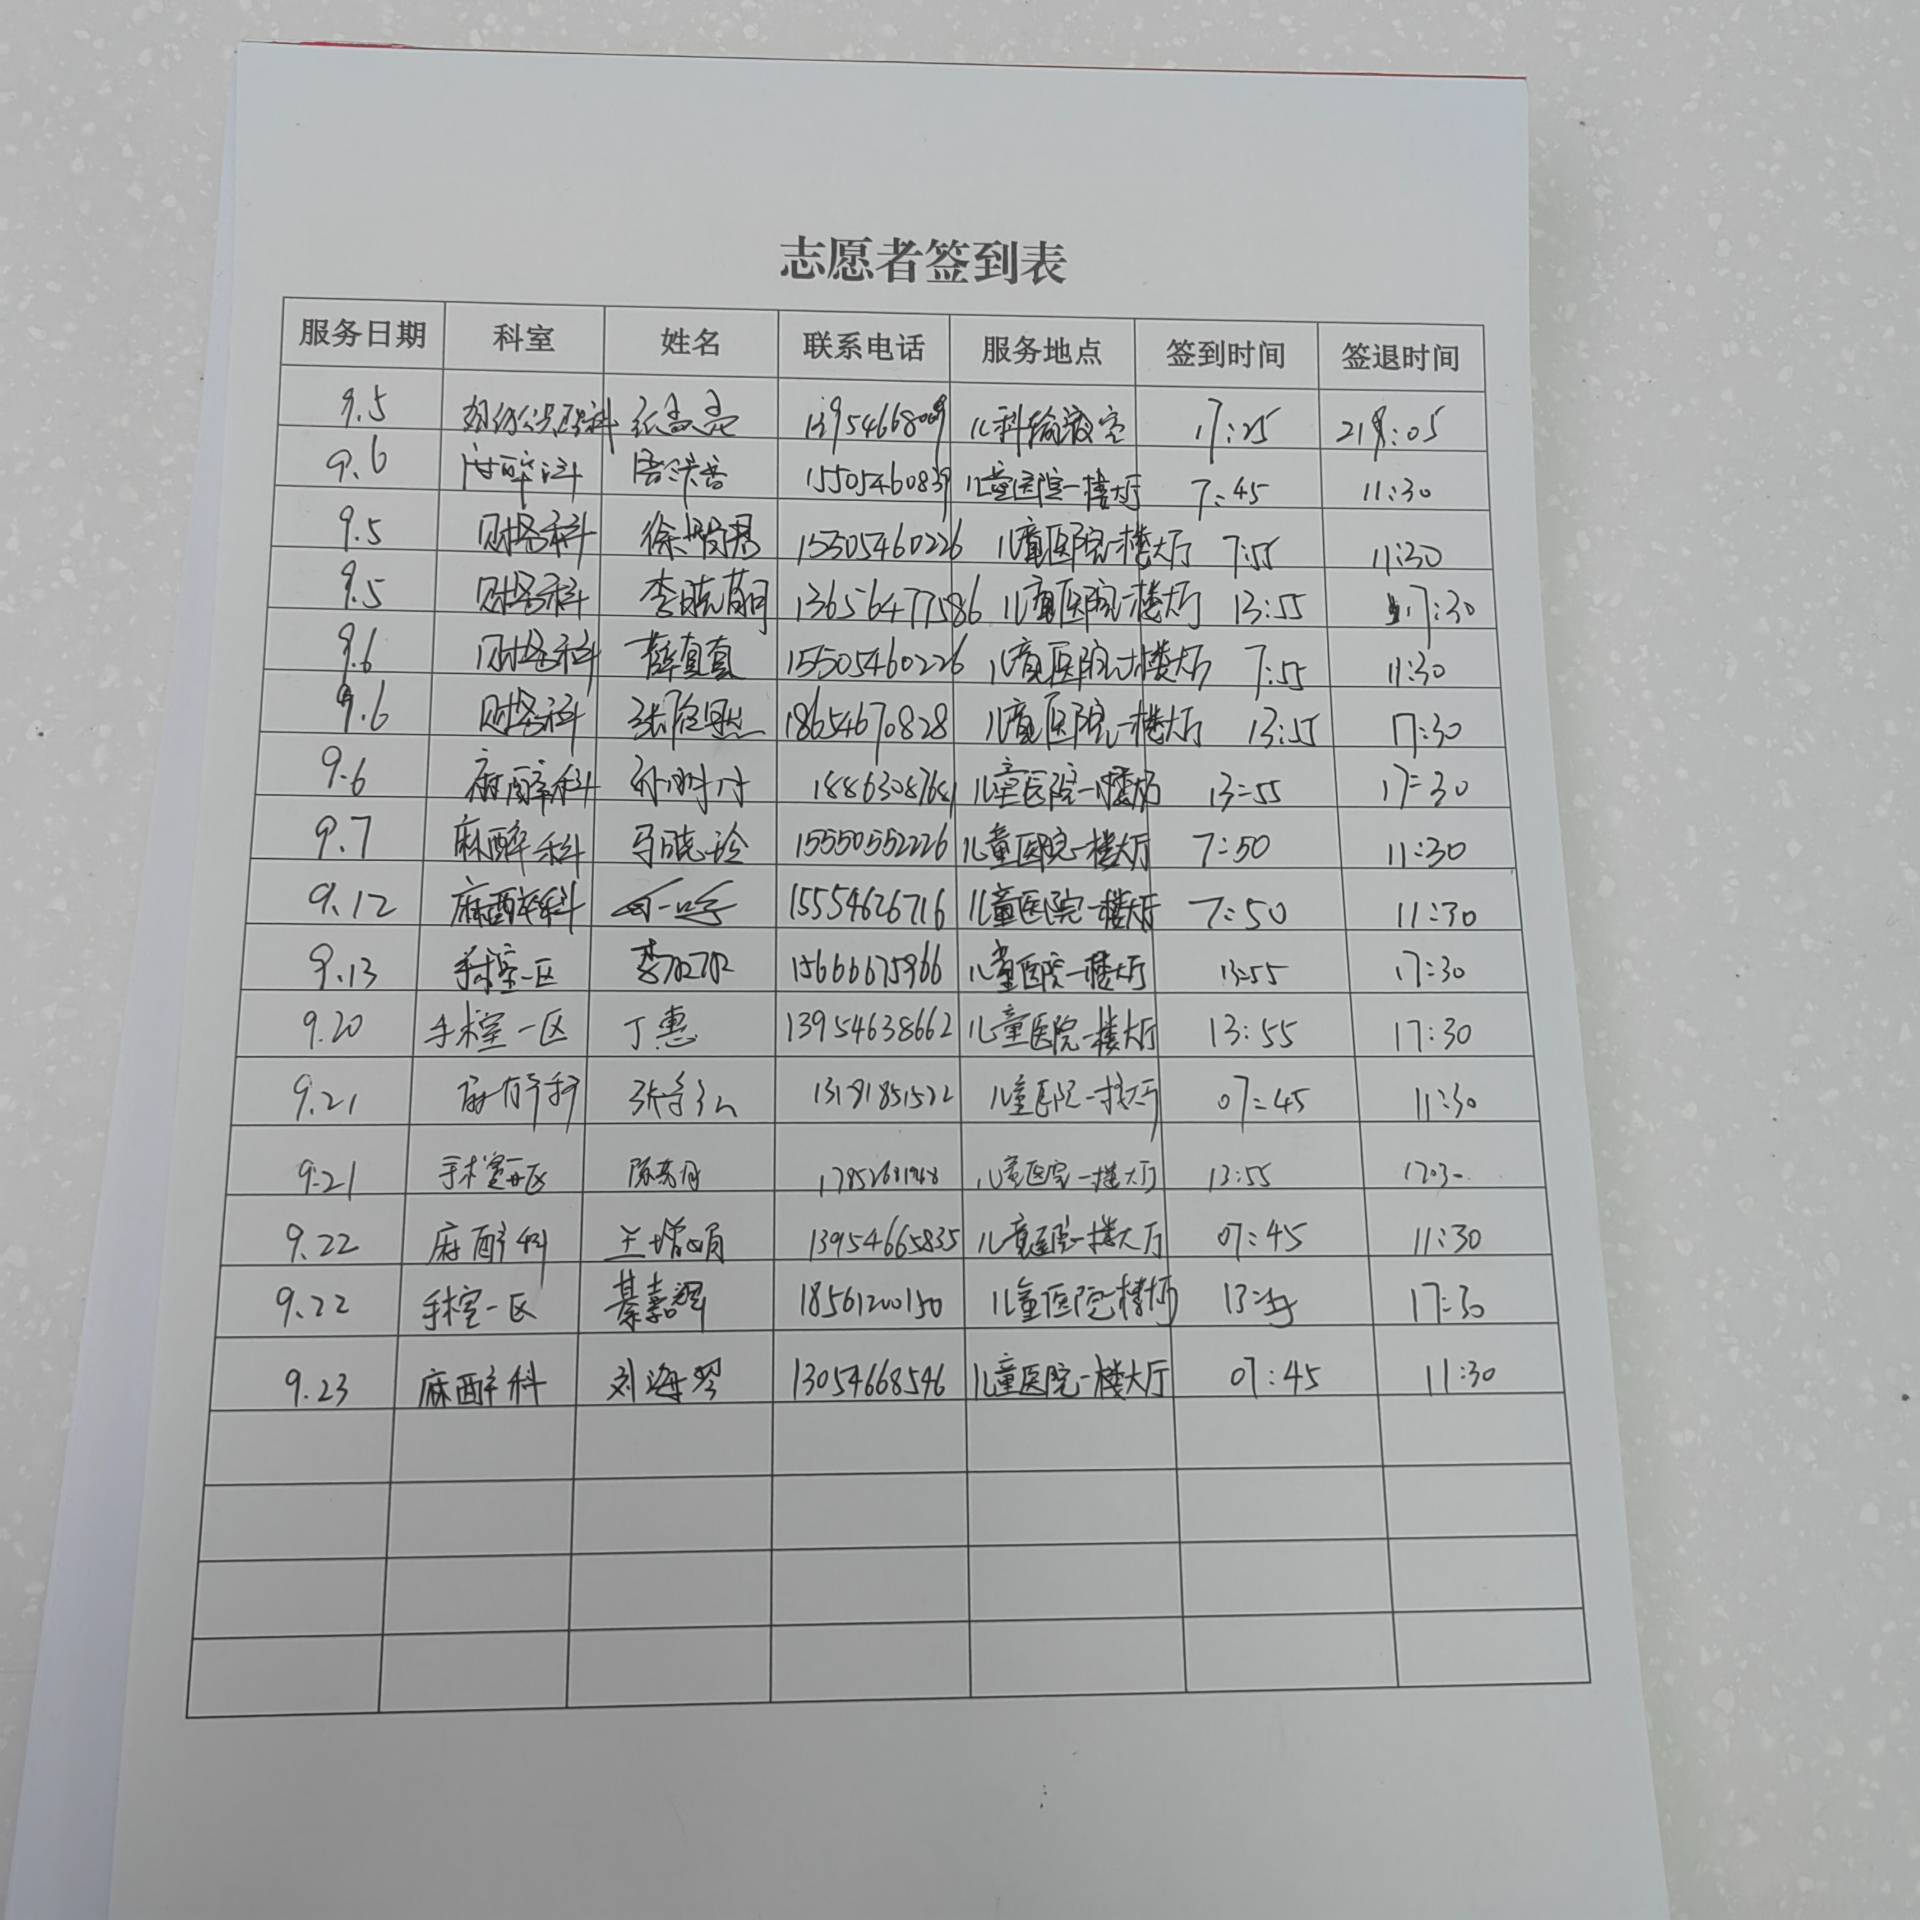 志愿者签到表
服务日期 科室 姓名 联系电话 服务地点 签到时间 签退时间
9.5 13954668009 儿科输液室 17:25 21:05
9.6 麻醉科 15505460839 儿童医院一楼大厅 7:45 11:30
9.5 财务科 徐 15505460226 儿童医院一楼大厅 7:55 11:30
9.5 财务科 李晓萌 13656477586 儿童医院一楼大厅 13:55 17:30
9.6 财务科 薛真真 15505460226 儿童医院一楼大厅 7:55 11:30
9.6 财务科 张 18654670828 儿童医院一楼大厅 13:55 17:30
9.6 麻醉科 18863087681 儿童医院一楼大厅 13:55 17:30
9.7 麻醉科 马晓玲 15550552226 儿童医院一楼大厅 7:50 11:30
9.12 麻醉科 15554626716 儿童医院一楼大厅 7:50 11:30
9.13 手术室一区 李 15666675966 儿童医院一楼大厅 13:55 17:30
9.20 手术室一区 丁惠 13954638662 儿童医院一楼大厅 13:55 17:30
9.21 麻醉科 张 13181851522 儿童医院一楼大厅 07:45 11:30
9.21 手术室 区 陈 儿童医院一楼大厅 13:55 17:30
9.22 麻醉科 王增娟 13954665835 儿童医院一楼大厅 07:45 11:30
9.22 手术室一区 綦嘉 18561200150 儿童医院一楼大厅 13:55 17:30
9.23 麻醉科 刘海琴 13054668546 儿童医院一楼大厅 07:45 11:30